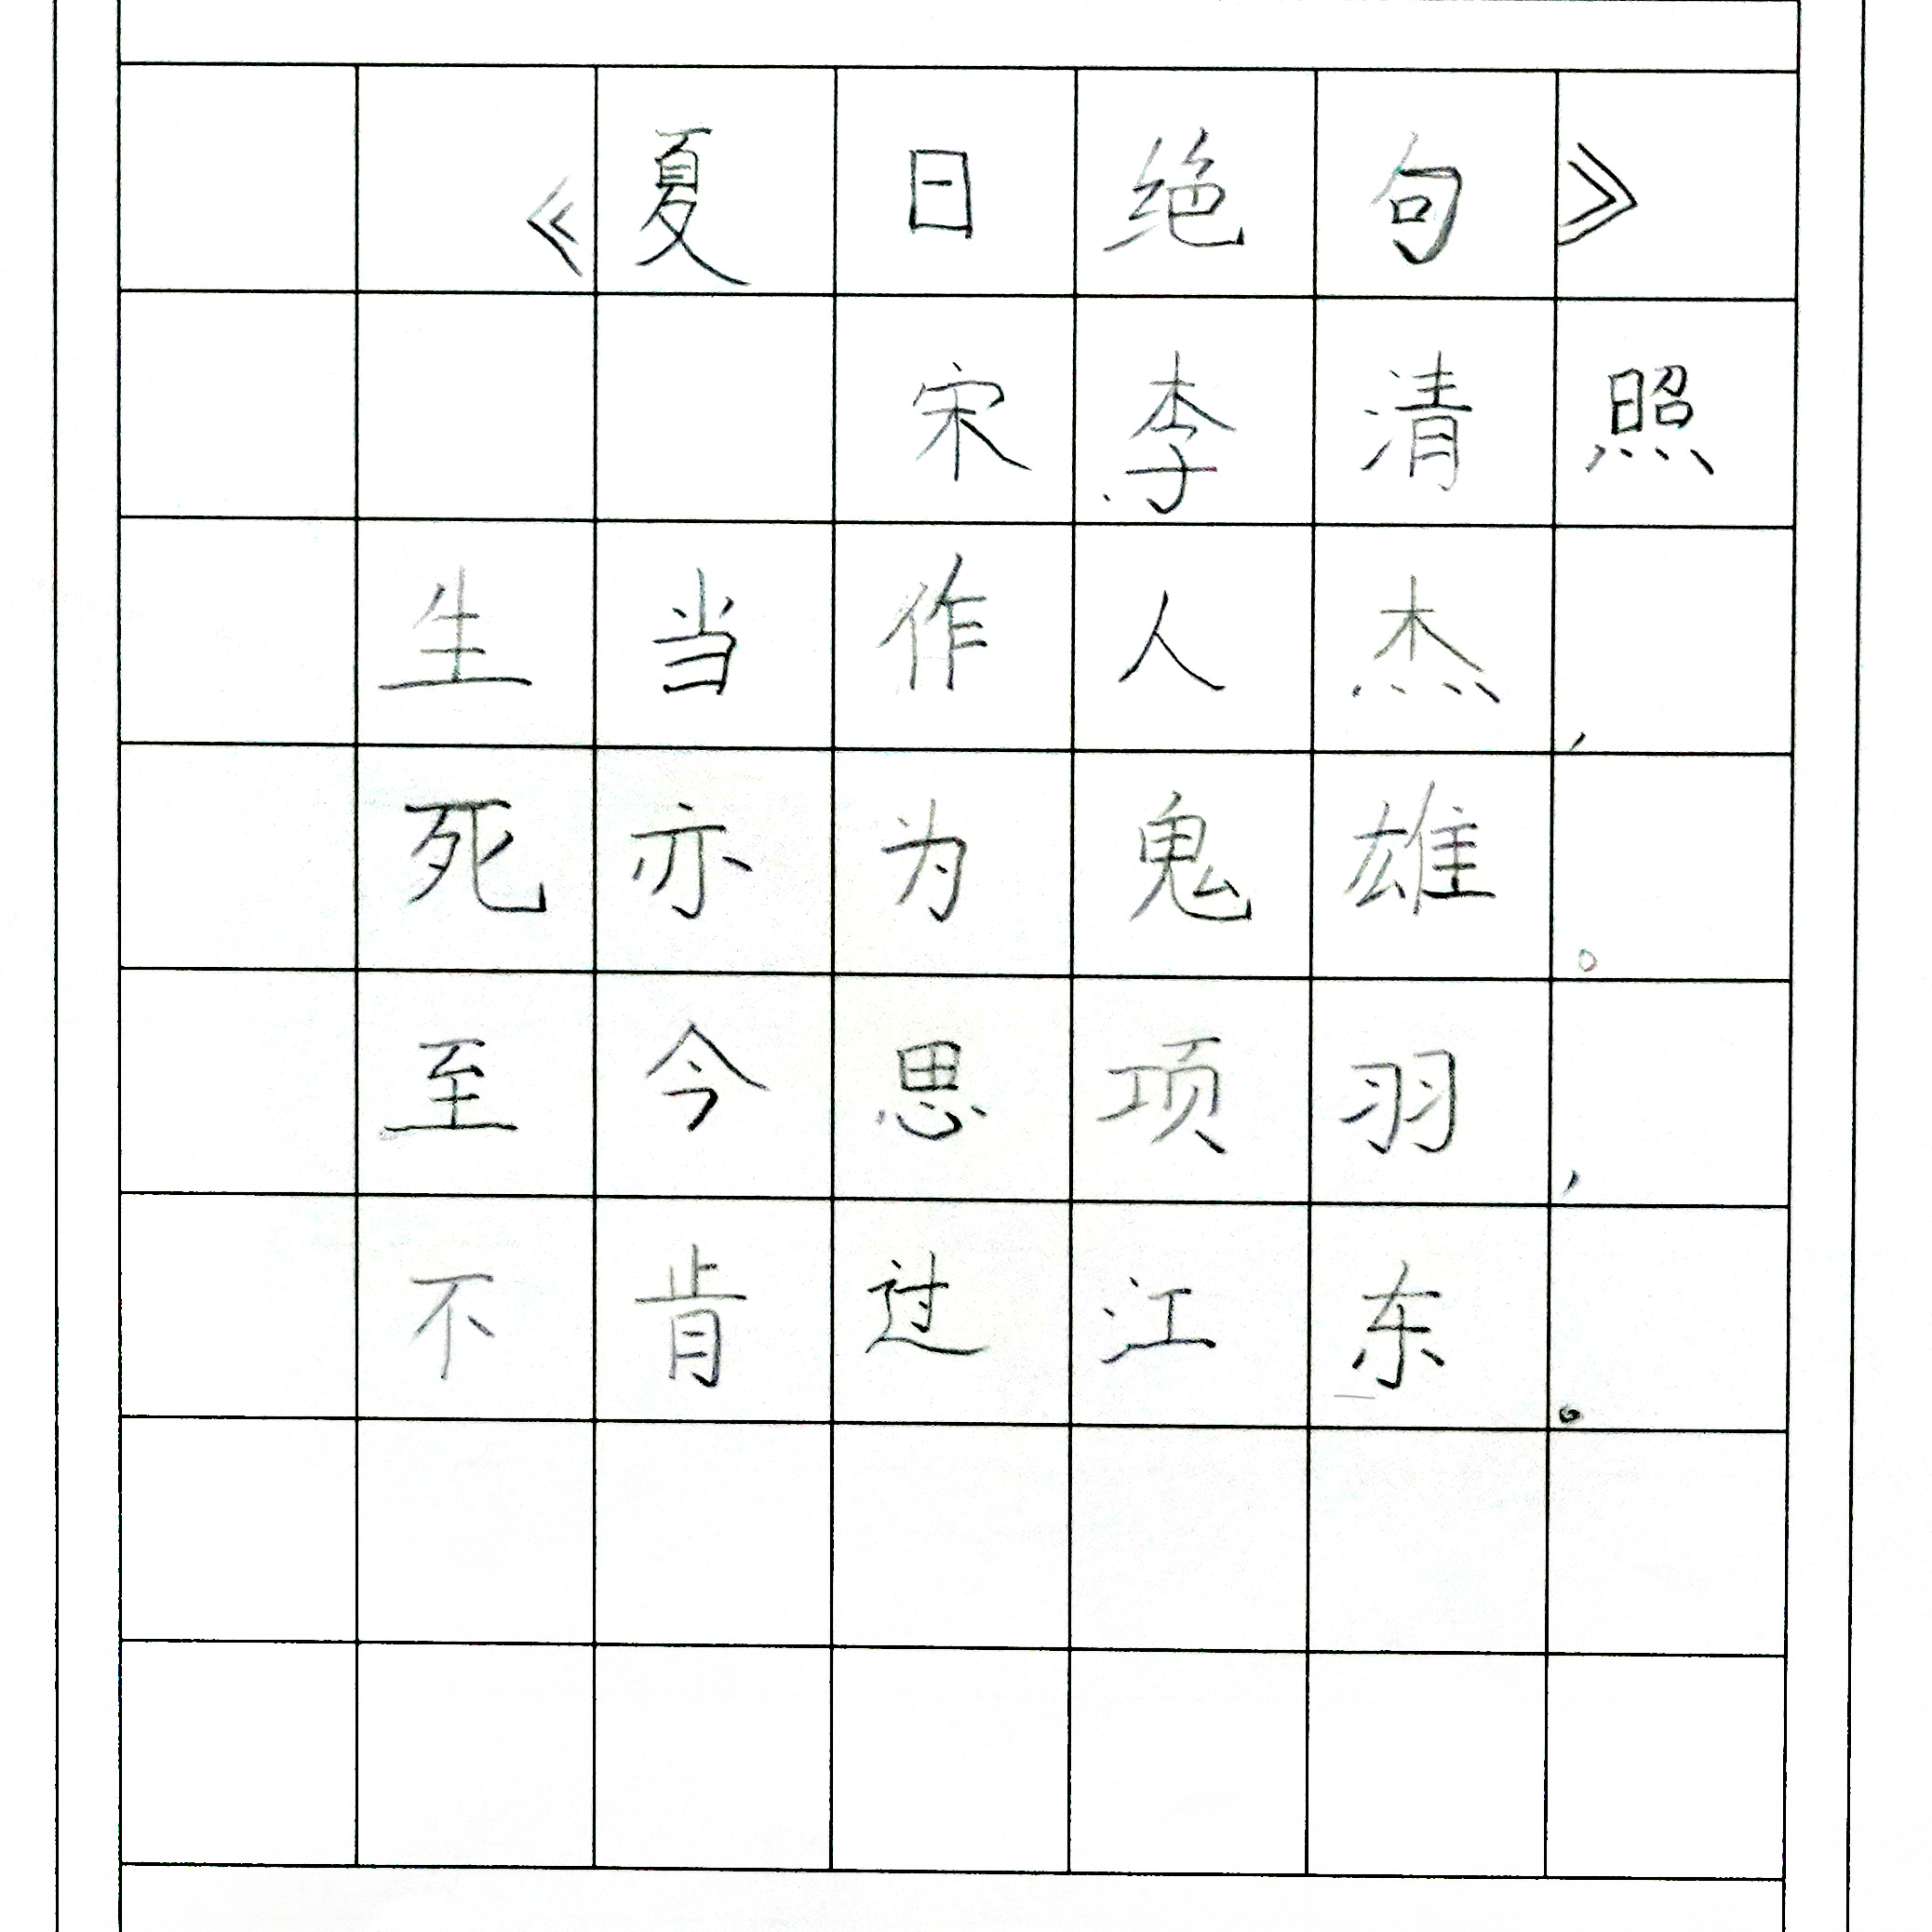 《夏日绝句》
宋李清照
生当作人杰，
死亦为鬼雄。
至今思项羽，
不肯过江东。